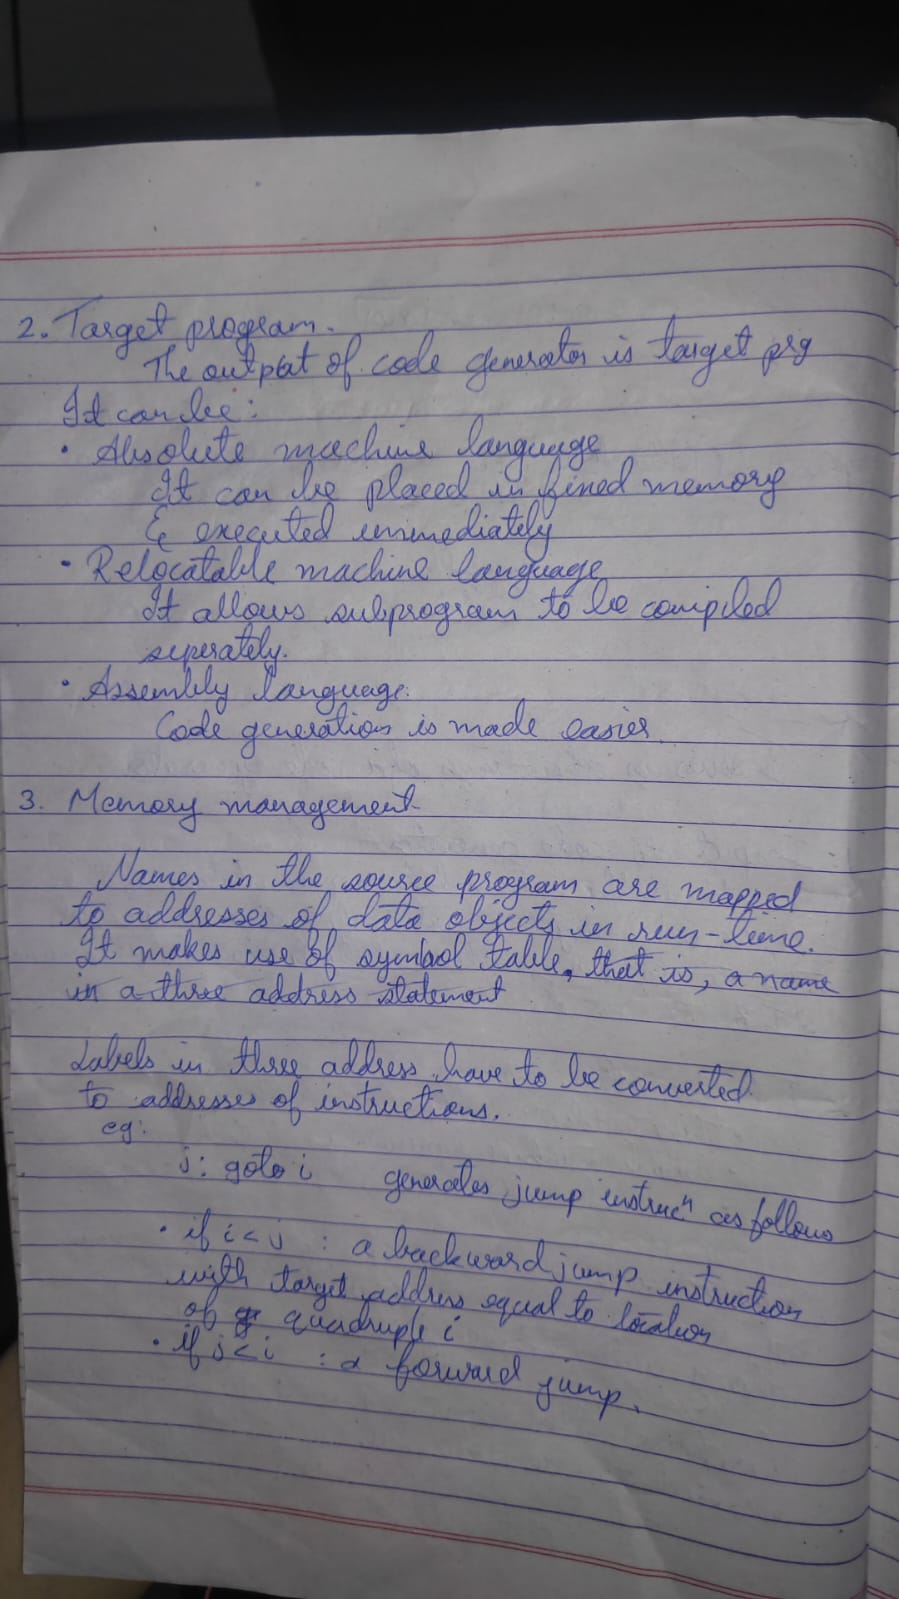 2. Target program.
The output of code generator is target prg
It can be:
• Absolute machine language
It can be placed in fixed memory
& executed immediately
• Relocatable machine language
It allows subprogram to be compiled
seperately.
• Assembly language.
Code generation is made easier
3. Memory management
Names in the source program are mapped
to addresses of data objects in run-time.
It makes use of symbol table, that is, a name
in a three address statement
Labels in three address have to be converted
to addresses of instructions.
eg:
j: goto i generates jump instrucⁿ as follows
• if i < j : a backward jump instruction
with target address equal to location
of quadruple i
• if j < i : a forward jump.